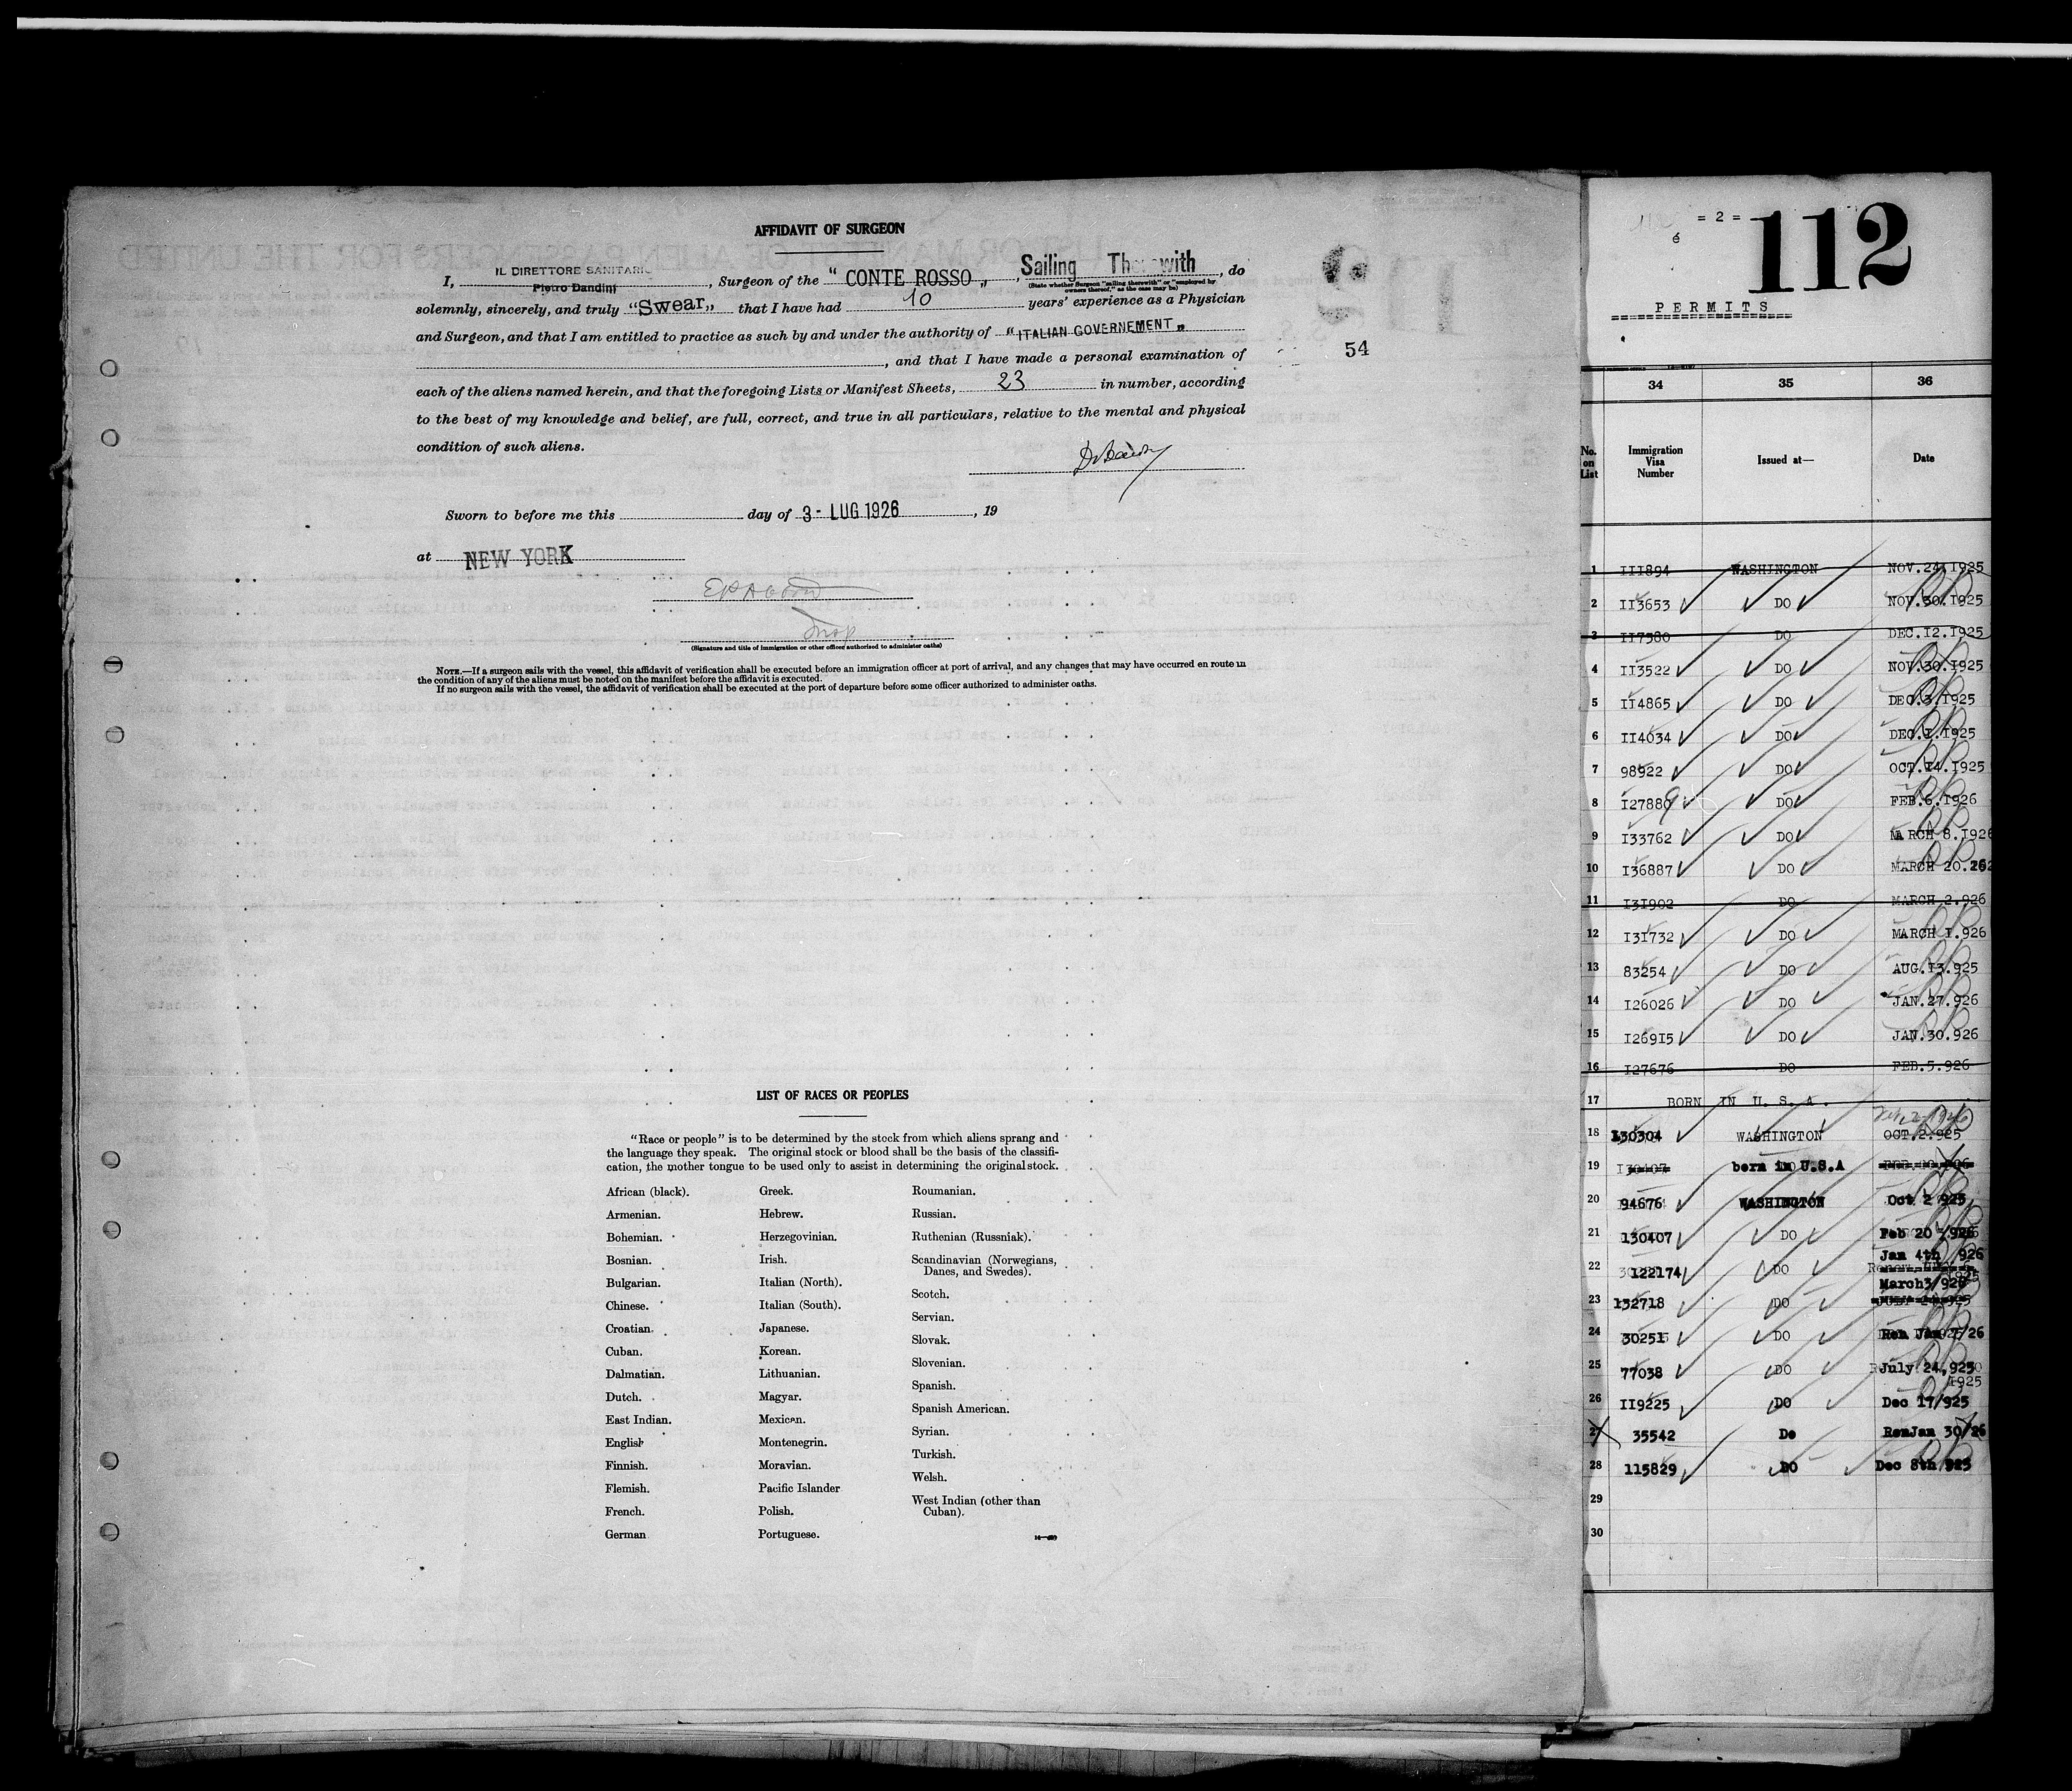 AFFIDAVIT OF SURGEON
IL DIRETTORE SANITARIO
I, Pietro Dandini, Surgeon of the “ CONTE ROSSO „, Sailing Therewith, do
(State whether Surgeon "sailing therewith" or "employed by
owners thereof," as the case may be)
solemnly, sincerely, and truly “Swear„ that I have had 10 years' experience as a Physician
and Surgeon, and that I am entitled to practice as such by and under the authority of “ITALIAN GOVERNEMENT„
, and that I have made a personal examination of
each of the aliens named herein, and that the foregoing Lists or Manifest Sheets, 23 in number, according
to the best of my knowledge and belief, are full, correct, and true in all particulars, relative to the mental and physical
condition of such aliens.
Sworn to before me this day of 3 - LUG 1926, 19
at NEW YORK
(Signature and title of immigration or other officer authorized to administer oaths)
NOTE.—If a surgeon sails with the vessel, this affidavit of verification shall be executed before an immigration officer at port of arrival, and any changes that may have occurred en route in
the condition of any of the aliens must be noted on the manifest before the affidavit is executed.
If no surgeon sails with the vessel, the affidavit of verification shall be executed at the port of departure before some officer authorized to administer oaths.
54
LIST OF RACES OR PEOPLES
“Race or people” is to be determined by the stock from which aliens sprang and
the language they speak. The original stock or blood shall be the basis of the classifi-
cation, the mother tongue to be used only to assist in determining the original stock.
African (black).
Armenian.
Bohemian.
Bosnian.
Bulgarian.
Chinese.
Croatian.
Cuban.
Dalmatian.
Dutch.
East Indian.
English
Finnish.
Flemish.
French.
German
Greek.
Hebrew.
Herzegovinian.
Irish.
Italian (North).
Italian (South).
Japanese.
Korean.
Lithuanian.
Magyar.
Mexican.
Montenegrin.
Moravian.
Pacific Islander
Polish.
Portuguese.
Roumanian.
Russian.
Ruthenian (Russniak).
Scandinavian (Norwegians,
Danes, and Swedes).
Scotch.
Servian.
Slovak.
Slovenian.
Spanish.
Spanish American.
Syrian.
Turkish.
Welsh.
West Indian (other than
Cuban).
= 2 =
112
é
PERMITS
34 35 36
No. on List Immigration Visa Number Issued at— Date
1 III894 WASHINGTON NOV.24.I925
2 II3653 DO NOV.30.I925
3 II7580 DO DEC.I2.I925
4 II3522 DO NOV.30.I925
5 II4865 DO DEC.3.I925
6 II4034 DO DEC.I.I925
7 98922 DO OCT.I4.I925
8 I27889 DO FEB.6.I926
9 I33762 DO MARCH 8.I926
10 I36887 DO MARCH 20.
11 I3I902 DO MARCH 2.926
12 I3I732 DO MARCH I.926
13 83254 DO AUG.I3.925
14 I26026 DO JAN.27.926
15 I269I5 DO JAN.30.926
16 I27676 DO FEB.5.926
17 BORN IN U. S. A.
18 130304 WASHINGTON OCT.2.925
19 born in U.S.A
20 94676 WASHINGTON Oct 2 925
21 130407 DO Feb 20 926
22 122174 DO Jan 4th 926
23 132718 DO March3/926
24 30251 DO Ren Jan 7/26
25 77038 DO July 24,925
26 II9225 DO Dec 17/925
27 35542 Do RenJan 30/26
28 115829 DO Dec 8th 925
29
30